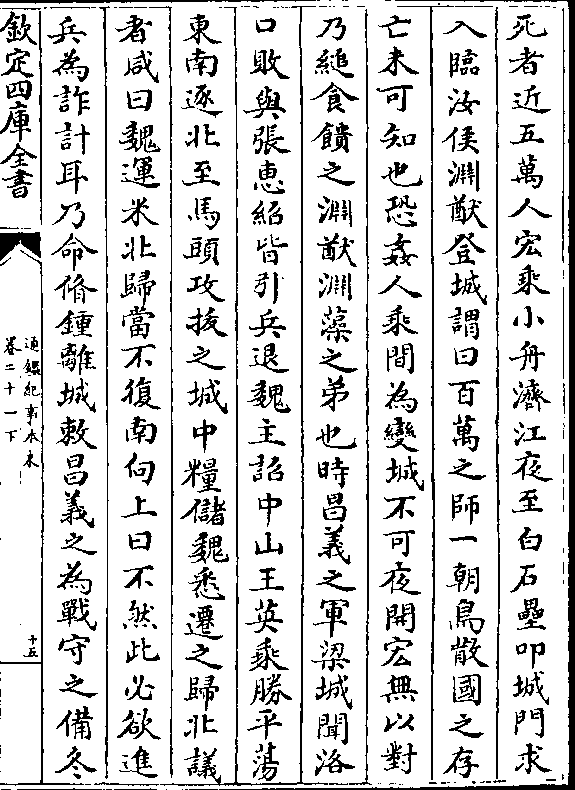 死者近五萬人宏乘小舟濟江夜至白石壘叩城門求
入臨汝侯淵猷登城謂曰百萬之師一朝鳥散國之存
亡未可知也恐姦人乘間為變城不可夜開宏無以對
乃縋食饋之淵猷淵藻之弟也時昌義之軍梁城聞洛
口敗與張惠紹皆引兵退魏主詔中山王英乘勝平蕩
東南逐北至馬頭攻拔之城中糧儲魏悉遷之歸北議
者咸曰魏運米北歸當不復南向上曰不然此必欲進
兵為詐計耳乃命脩鍾離城敕昌義之為戰守之備冬
欽定四庫全書
通鑑紀事本末
卷二十一下
十五